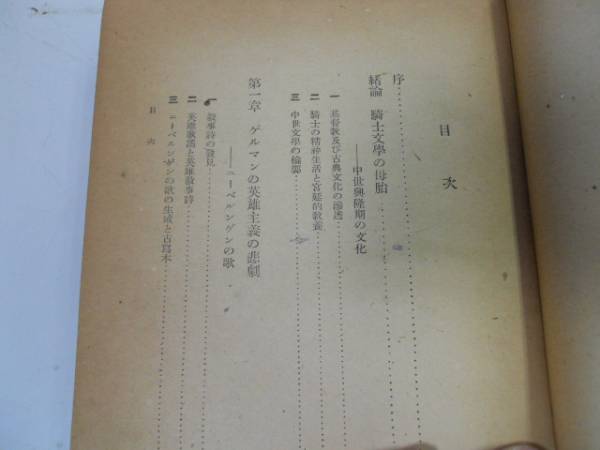 目次
序
緒論 騎士文學の母胎
——中世興隆期の文化
一 基督敎及び古典文化の滲透
二 騎士の精神生活と宮廷的敎養
三 中世文學の輪郭
第一章 ゲルマンの英雄主義の悲劇
——ニーベルンゲンの歌
一 敍事詩の發見
二 英雄歌謠と英雄敍事詩
三 ニーベルンゲンの歌の生成と古寫本
目次